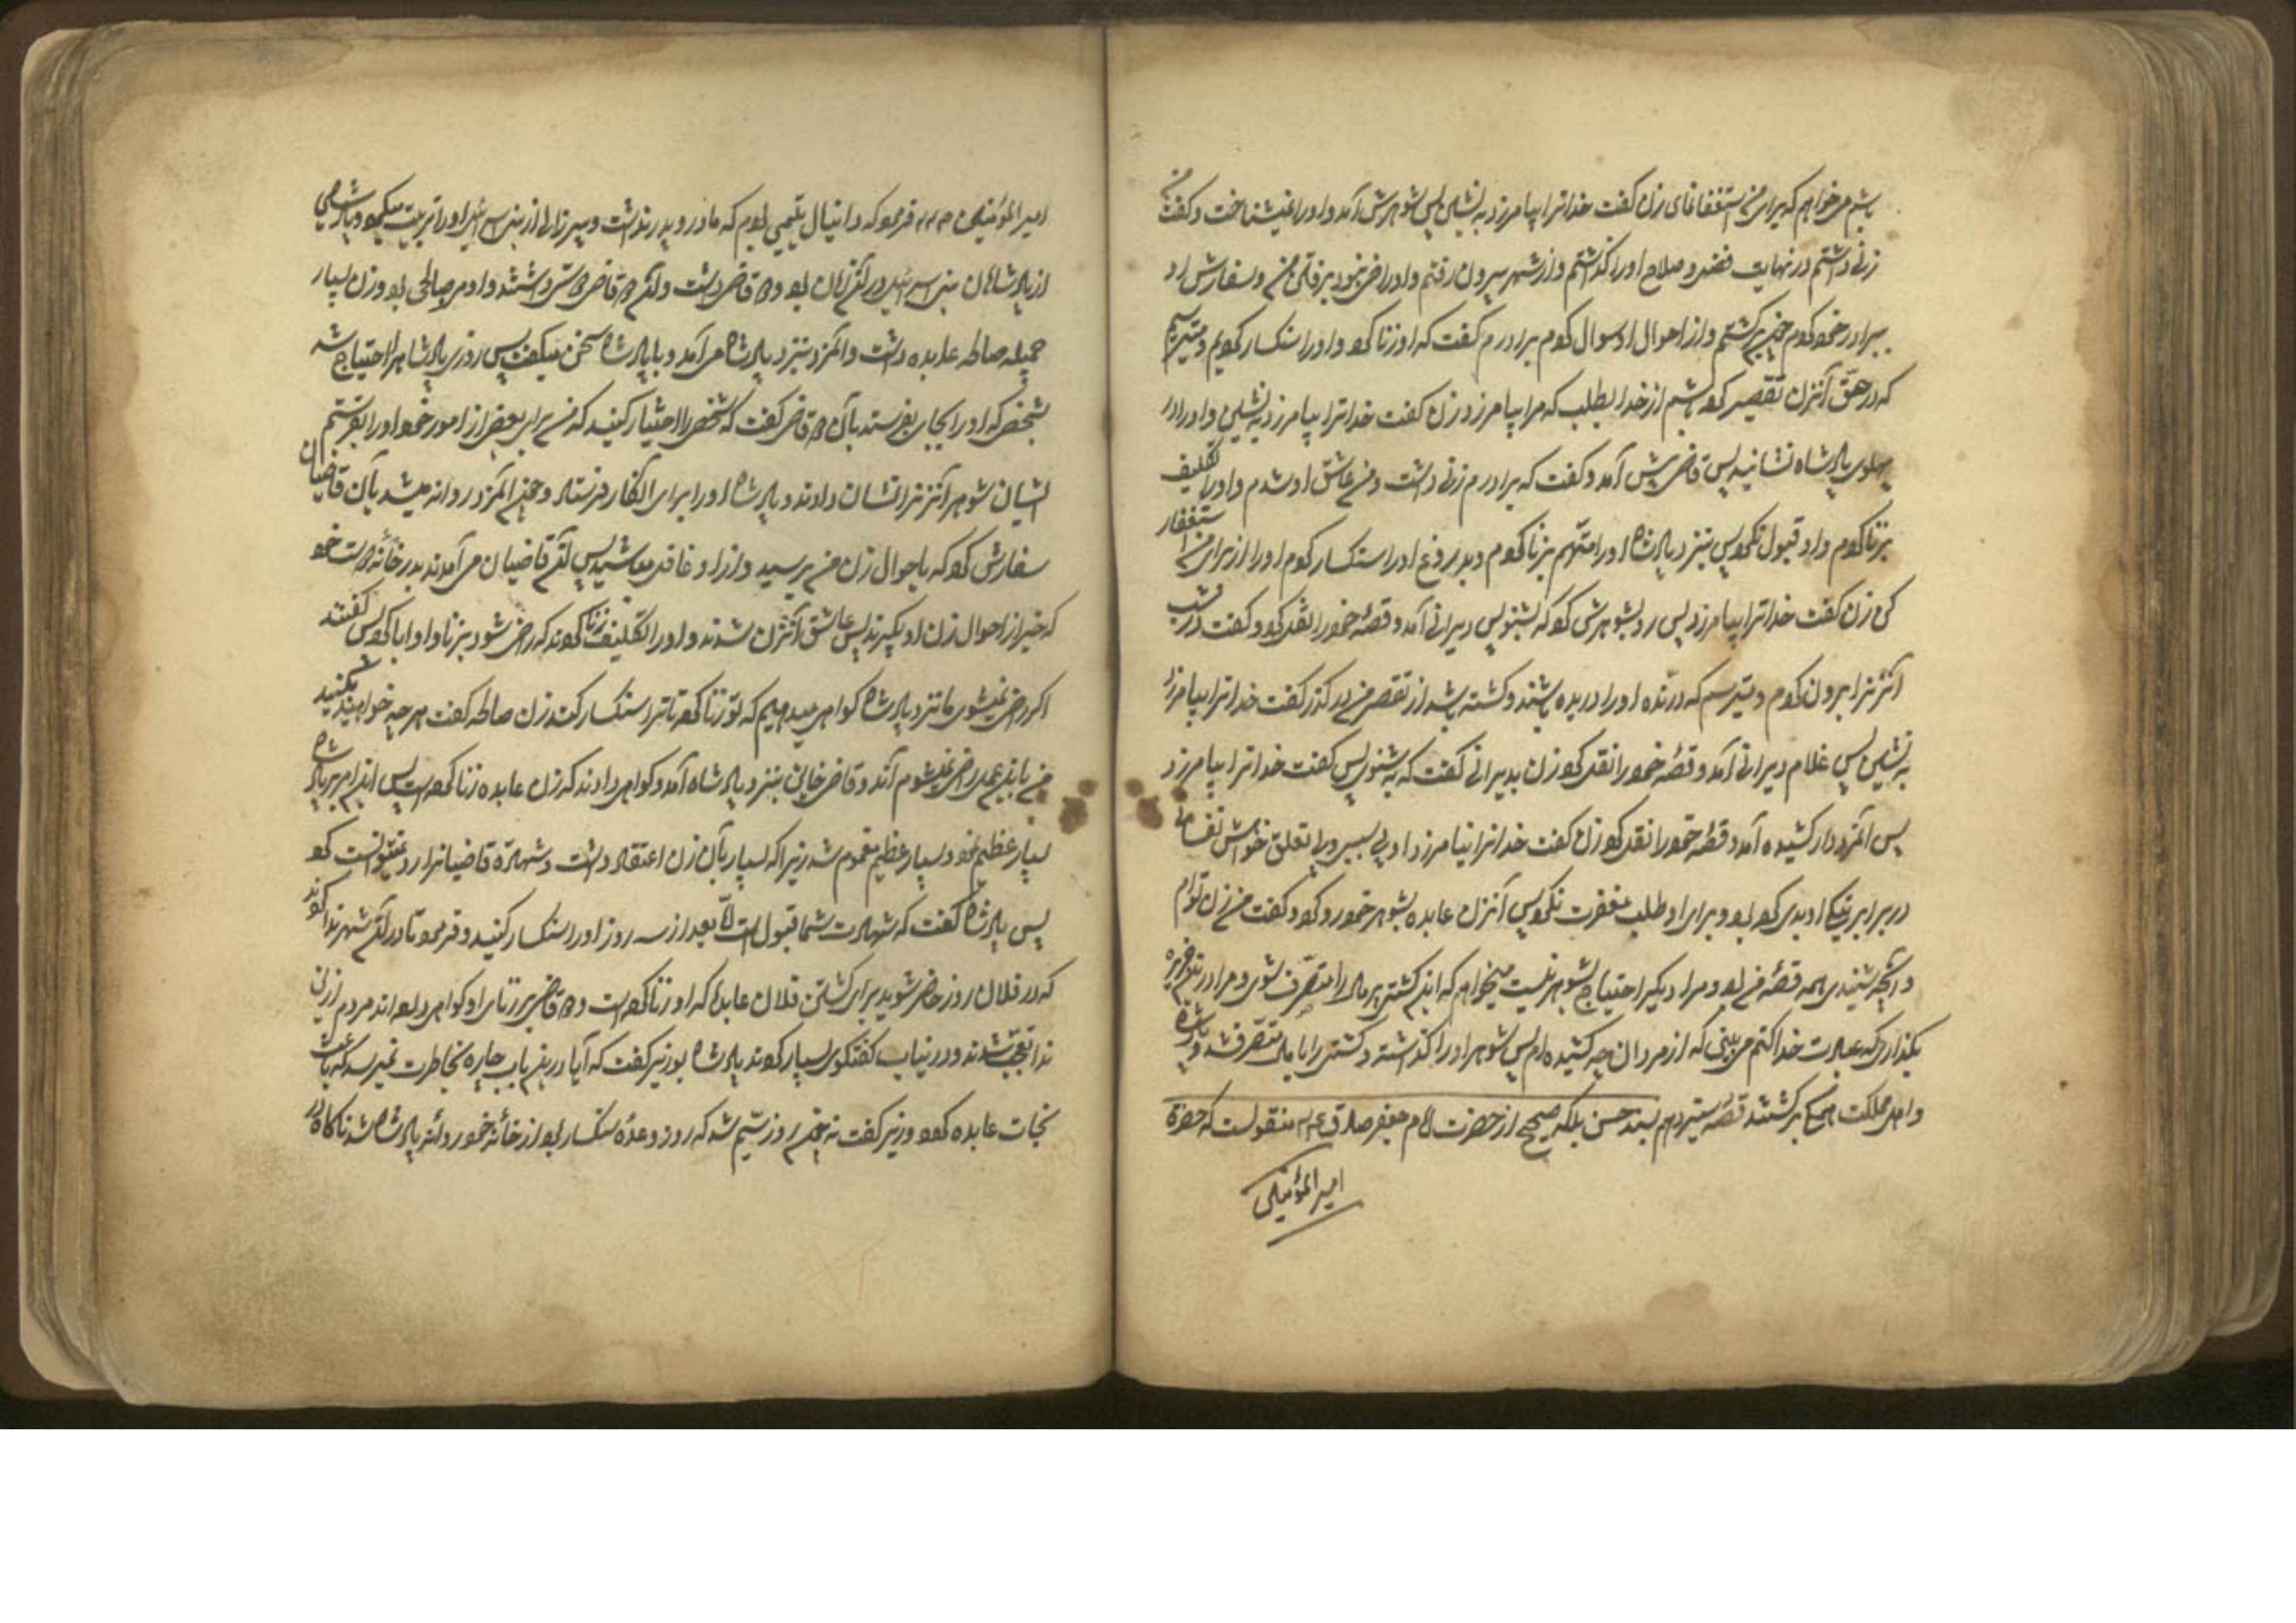 باشم میخواهم که برای من استغفار نمای زن گفت خدا ترا بیامرزد بنشین پس شوهرش آمد و او را نمیشناخت و گفت من
زنی داشتم در نهایت فضل و صلاح او را گذاشتم و از شهر بیرون رفتم و او راضی نبود برفتن من و سفارش او
ببرادر خود کردم چون برگشتم و از احوال او سوال کردم برادرم گفت که او زنا کرد و او را سنگسار کردیم و میترسم
که در حق آن زن تقصیر کرده باشم از خدا بطلب که مرا بیامرزد زن گفت خدا ترا بیامرزد بنشین و او را در
پهلوی پادشاه نشانید پس قاضی پیش آمد و گفت که برادرم زنی داشت و من عاشق او شدم و او را تکلیف
بزنا کردم و او قبول نکرد پس بنزد پادشاه او را متهم بزنا کردم و بدروغ او را سنگسار کردم او را از برای من استغفار
کن زن گفت خدا ترا بیامرزد پس رو بشوهرش کرد که بشنو پس دیرانی آمد و قصه خود را نقل کرد و گفت در شب
آنزنرا بیرون کردم و میترسم که درنده او را دریده باشند و کشته باشد از تقصیر من درگذر گفت خدا ترا بیامرزد
بنشین پس غلام دیرانی آمد و قصه خود را نقل کرد زن بدیرانی گفت که بشنو پس گفت خدا ترا بیامرزد
پس آنمرد دار کشیده آمد و قصه خود را نقل کرد زن گفت خدا ترا نیامرزد او بی سببی
در برابر نیکی او بدی کرده بود و برای او طلب مغفرت نکرد پس آنزن عابده بشوهر خود رو کرد و گفت من زن توام
و آنچه شنیدی همه قصه من بود و مرا دیگر احتیاج بشوهر نیست میخواهم که این کشتی پر مال را متصرف شوی و مرا در این جزیره
بگذاری که عبادت خدا کنم می بینی که از مردان چه کشیده ام پس شوهر او را گذاشت و کشتی را با مال متصرف شد و پادشاه
و اهل مملکت همگی برگشتند قصه سیزدهم بسند حسن بلکه صحیح از حضرت امام جعفر صادق ع م منقولست که حضرة
امیر المؤمنین
امیر المؤمنین فرمود که دانیال یتیمی بود که مادر و پدر نداشت و پیر زالی از بنی اسرائیل او را تربیت میکرد و پادشاهی
از پادشاهان بنی اسرائیل در آن زمان بود و دو قاضی داشت و آن دو قاضی دوستی داشتند و او مرد صالحی بود و زن بسیار
جمیله صالحه عابده داشت و آنمرد بنزد پادشاه می آمد و با پادشاه سخن میگفت پس روزی پادشاه را احتیاج شد
بشخصی که او را بجایی بفرستد بآن دو قاضی گفت که شخصی را اختیار کنید که من برای بعضی از امور خود او را بفرستم
ایشان شوهر آنزنرا نشان دادند و پادشاه او را برای آنکار فرستاد و چون آنمرد روانه میشد بآن قاضیان
سفارش کرد که باحوال زن من برسید و از او غافل مباشید پس آن قاضیان می آمدند بدر خانه دوست خود
که خبر از احوال زن او بگیرند پس عاشق آنزن شدند و او را تکلیف زنا کردند که راضی شود بزنا و او ابا کرد پس گفتند
اگر راضی نمیشوی ما نزد پادشاه گواهی میدهیم که تو زنا کرده تا ترا سنگسار کند زن صالحه گفت هر چه خواهید بکنید
من باین عمل راضی نمیشوم آن دو قاضی خاین بنزد پادشاه آمد و گواهی دادند که زن عابده زنا کرده است پس این امر بر پادشاه
بسیار عظیم نمود و بسیار عظیم مغموم شد زیرا که بسیار بآن زن اعتقاد داشت و شهادة قاضیانرا رد نمیتوانست کرد
پس پادشاه گفت که شهادت شما قبول است اما بعد از سه روز او را سنگسار کنید و فرمود تا در آن شهر ندا کردند
که در فلان روز حاضر شوید برای کشتن فلان عابده که او زنا کرده است و دو قاضی بر زنای او گواهی داده اند مردم از این
ندا تعجب شدند و در اینباب گفتگوی بسیار کردند پادشاه بوزیر گفت که آیا در این باب چاره بخاطرت نمیرسد که باعث
نجات عابده گردد وزیر گفت نه چون روز سیم شد که روز وعده سنگسار بود از خانه خود روانه پادشاه شد ناگاه در